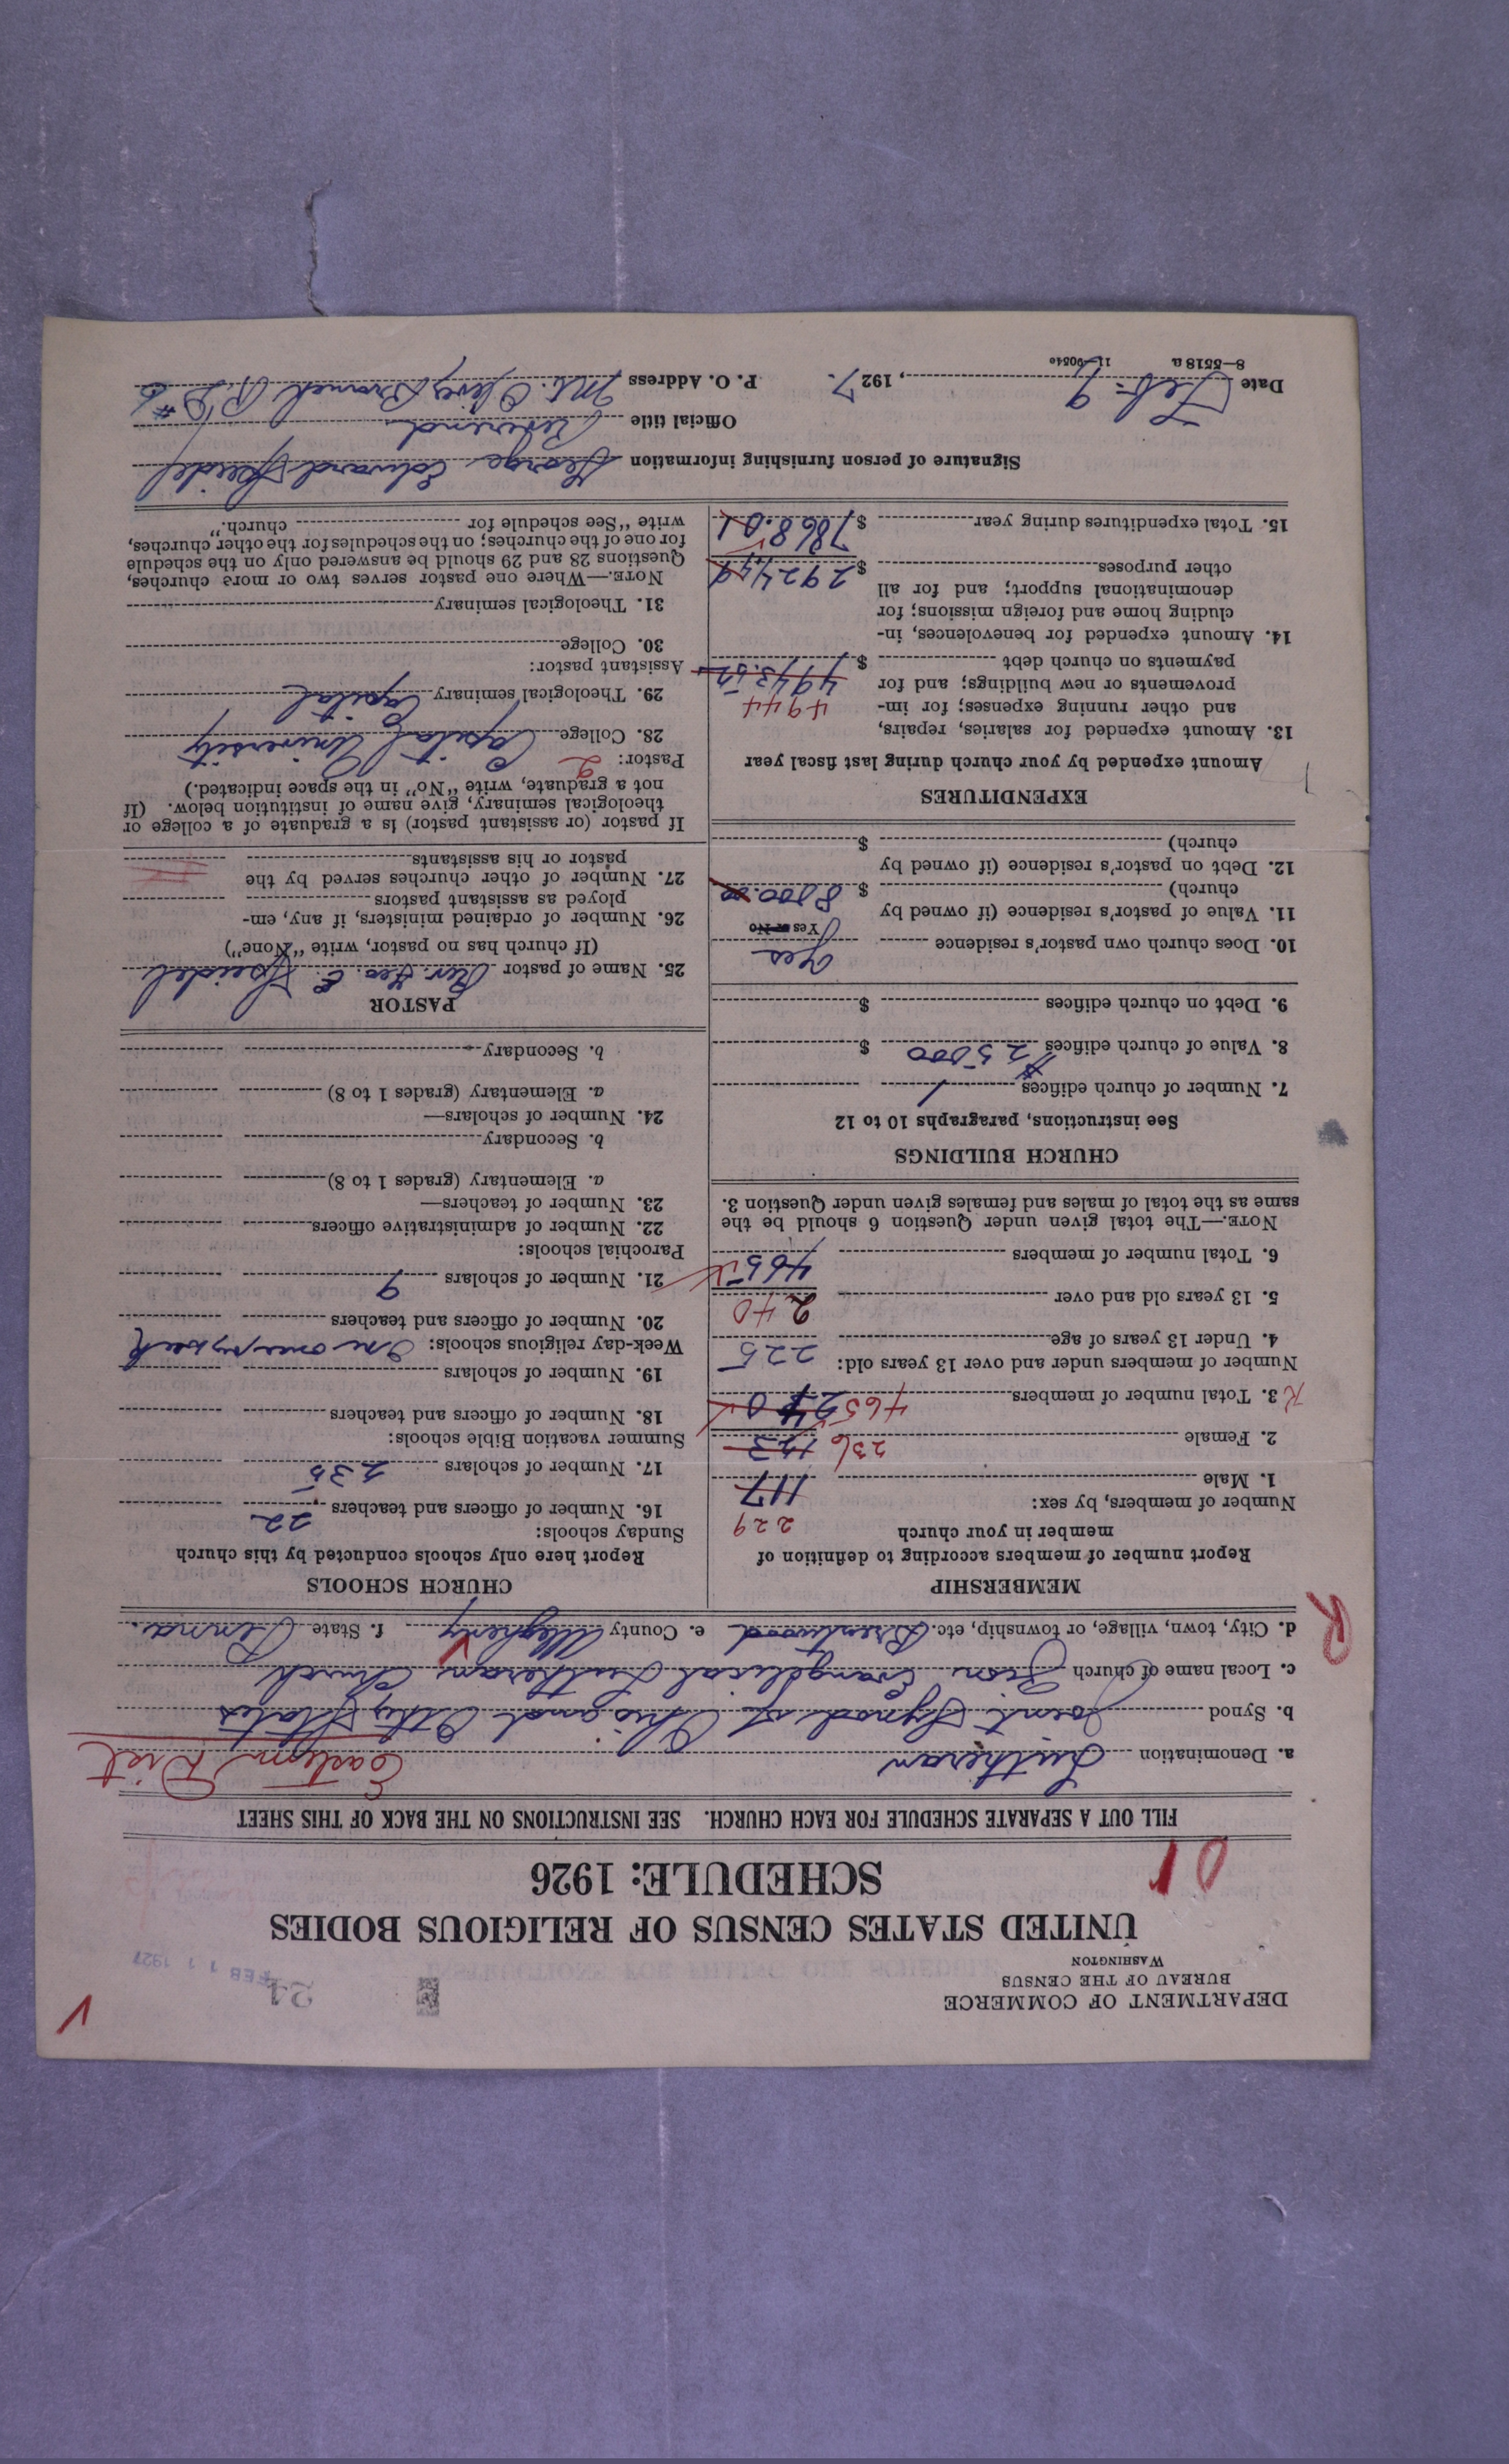 DEPARTMENT OF COMMERCE
BUREAU OF THE CENSUS
WASHINGTON
24
FEB 11 1927
UNITED STATES CENSUS OF RELIGIOUS BODIES
SCHEDULE: 1926
01
FILL OUT A SEPARATE SCHEDULE FOR EACH CHURCH. SEE INSTRUCTIONS ON THE BACK OF THIS SHEET
a. Denomination Lutheran Eastern Dist
b. Synod Joint Synod of Ohio and Other States
c. Local name of church Zion Evangelical Lutheran Church
d. City, town, village, or township, etc. Brentwood e. County Allegheny f. State Penna.
R
MEMBERSHIP
Report number of members according to definition of
member in your church
229
Number of members, by sex:
1. Male 117
2. Female 236 123
R 3. Total number of members 465 240
Number of members under and over 13 years old:
4. Under 13 years of age 225
5. 13 years old and over 240
6. Total number of members 465
NOTE.—The total given under Question 6 should be the
same as the total of males and females given under Question 3.
CHURCH BUILDINGS
See instructions, paragraphs 10 to 12
7. Number of church edifices 1
8. Value of church edifices $25000 $
9. Debt on church edifices $
10. Does church own pastor's residence Yes
Yes or No
11. Value of pastor's residence (if owned by
church) $ 8000.00
12. Debt on pastor's residence (if owned by
church) $
EXPENDITURES
Amount expended by your church during last fiscal year
13. Amount expended for salaries, repairs,
and other running expenses; for im-
provements or new buildings; and for
payments on church debt $ 4943.52
4944
14. Amount expended for benevolences, in-
cluding home and foreign missions; for
denominational support; and for all
other purposes $ 2924.49
15. Total expenditures during year $ 7868.01
CHURCH SCHOOLS
Report here only schools conducted by this church
Sunday schools:
16. Number of officers and teachers 22
17. Number of scholars 235
Summer vacation Bible schools:
18. Number of officers and teachers
19. Number of scholars
Week-day religious schools: One once per week
20. Number of officers and teachers
21. Number of scholars 9
Parochial schools:
22. Number of administrative officers
23. Number of teachers—
a. Elementary (grades 1 to 8)
b. Secondary
24. Number of scholars—
a. Elementary (grades 1 to 8)
b. Secondary
PASTOR
25. Name of pastor Rev. Geo. E. Speidel
(If church has no pastor, write "None")
26. Number of ordained ministers, if any, em-
ployed as assistant pastors
27. Number of other churches served by the
pastor or his assistants
If pastor (or assistant pastor) is a graduate of a college or
theological seminary, give name of institution below. (If
not a graduate, write "No" in the space indicated.)
Pastor: 2
28. College Capital University
29. Theological seminary Capital
Assistant pastor:
30. College
31. Theological seminary
NOTE.—Where one pastor serves two or more churches,
Questions 28 and 29 should be answered only on the schedule
for one of the churches; on the schedules for the other churches,
write "See schedule for church."
Signature of person furnishing information George Edward Speidel
Official title Reverend
Date Feb. 9, 1927. P. O. Address Mt. Oliver Branch R.D. #6
8—5518a 11—9054e